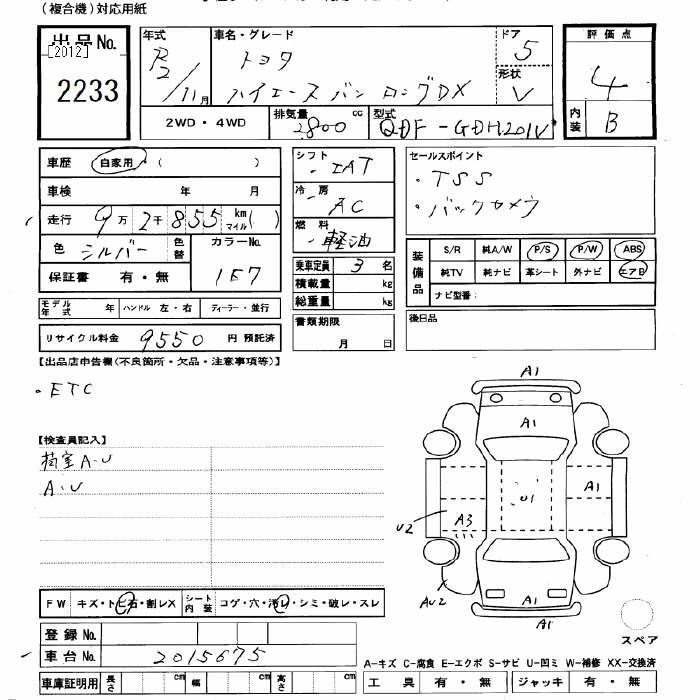 (複合機)対応用紙
出品No.
[2012]
2233
年式
R2/11月
車名・グレード
トヨタ
ハイエースバン ロングDX
ドア
5
形状
V
評価点
4
内装
B
2WD・4WD
排気量
2800 cc
型式
QDF-GDH201V
車歴 自家用・( )
車検 年 月
走行 9万2千855 km マイル( )
色 シルバー 色替
カラーNo.
1E7
保証書 有・無
シフト
・IAT
冷房
・AC
燃料
・軽油
乗車定員 3名
積載量 kg
総重量 kg
セールスポイント
・TSS
・バックカメラ
装備品
S/R 純A/W P/S P/W ABS
純TV 純ナビ 革シート 外ナビ エアB
ナビ型番:
モデル年式 年 ハンドル 左・右 ディーラー・並行
リサイクル料金 9550 円 預託済
書類期限
月 日
後日品
【出品店申告欄(不良箇所・欠品・注意事項等)】
・ETC
【検査員記入】
荷室A・U
A・U
A1
A1
U1
A1
A3
U2
AU2
A1
A1
スペア
FW キズ・トビ石・割レX シート内装 コゲ・穴・汚レ・シミ・破レ・スレ
登録No.
車台No. 2015675
車庫証明用 長さ cm 幅 cm 高さ cm
A-キズ C-腐食 E-エクボ S-サビ U-凹ミ W-補修 XX-交換済
工具 有・無 ジャッキ 有・無